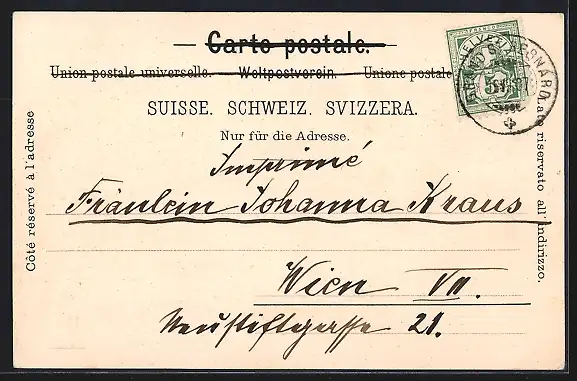 Carte postale.
Union postale universelle. — Weltpostverein. — Unione postale
SUISSE. SCHWEIZ. SVIZZERA.
Nur für die Adresse.
Côté réservé à l'adresse
Lato riservato all'indirizzo.
HELVETIA
FRANCO
5
GRAND ST BERNARD
Imprimé
Fräulein Johanna Kraus
Wien VII.
Neustiftgasse 21.